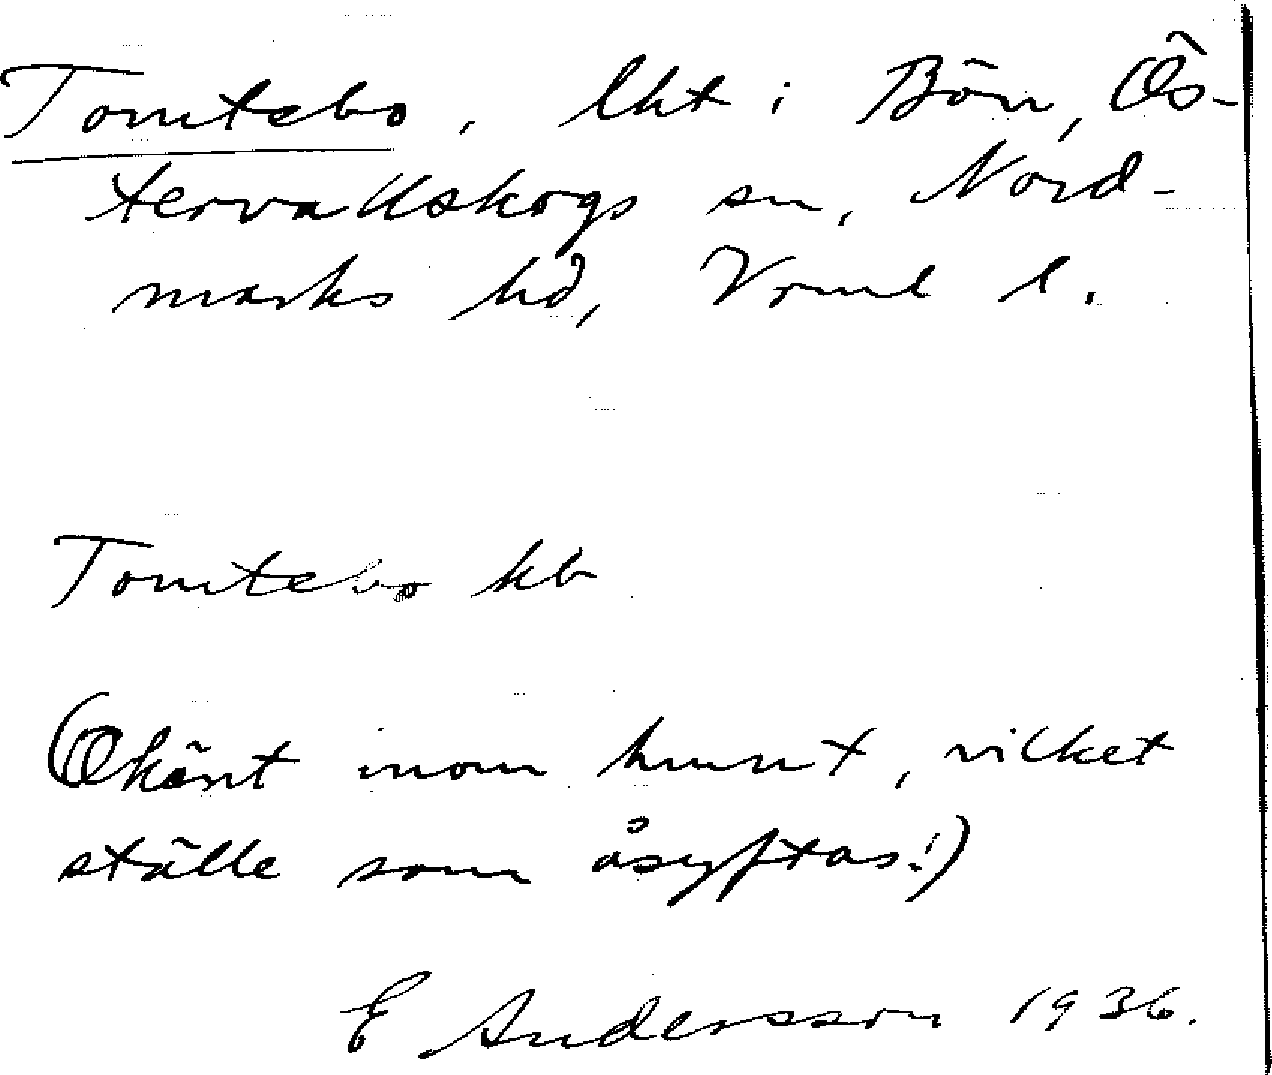 Tomtebo, lht i Bön, Ös-
tervallskogs sn, Nord-
marks hd, Vrml l.
Tomtebo kb
(Okänt inom hmnt, vilket
ställe som åsyftas!)
E Andersson 1936.